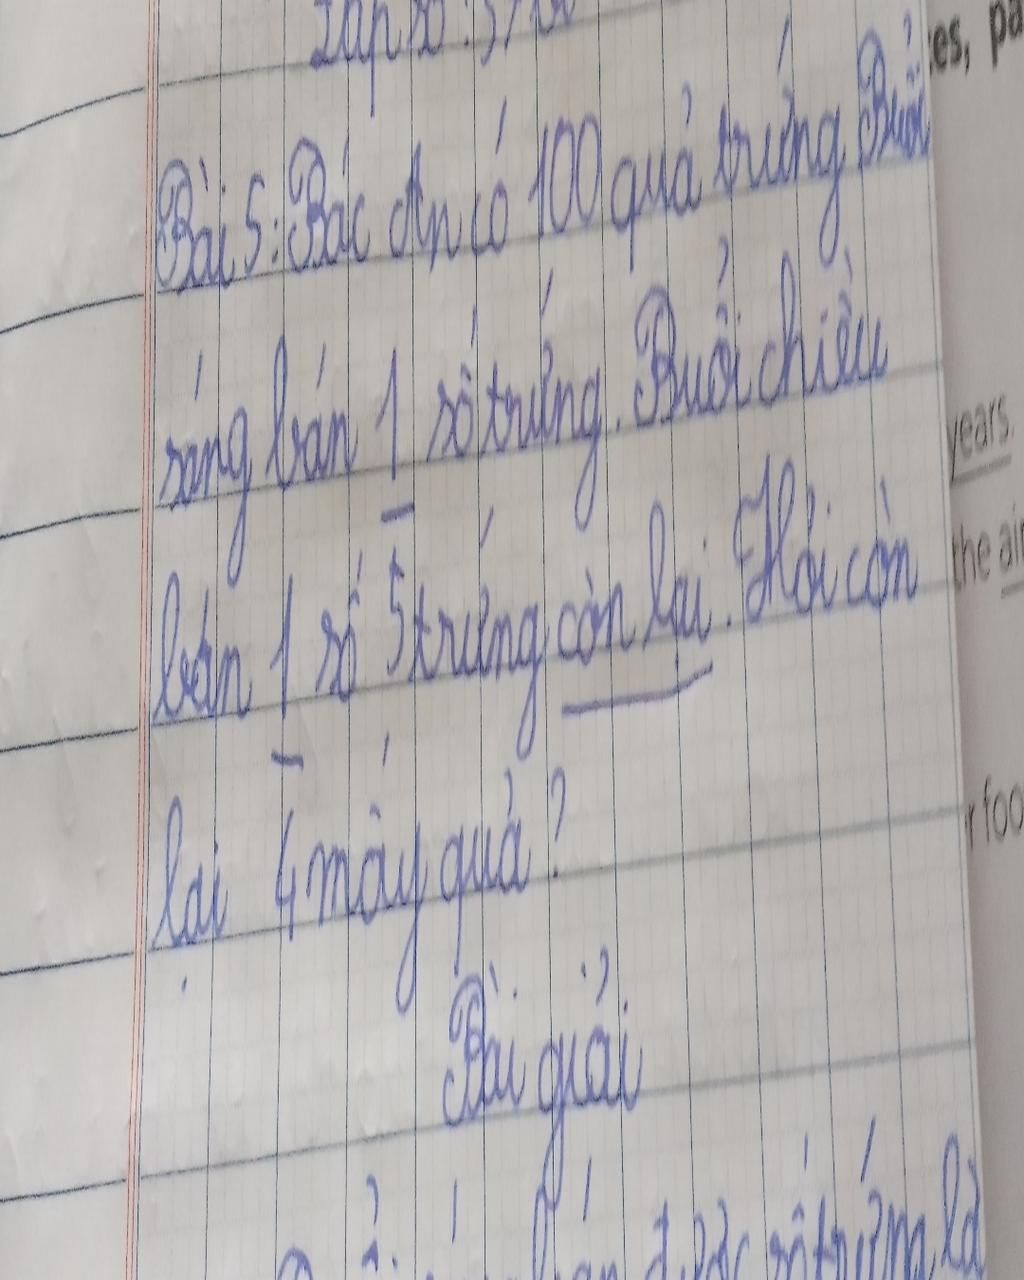 Bài 5: Bác An có 100 quả trứng Buổi
sáng bán 1/5 số trứng. Buổi chiều
bán 1/4 số trứng còn lại. Hỏi còn
lại mấy quả?
Bài giải
số trứng là
es, pa
years.
the air
r foo